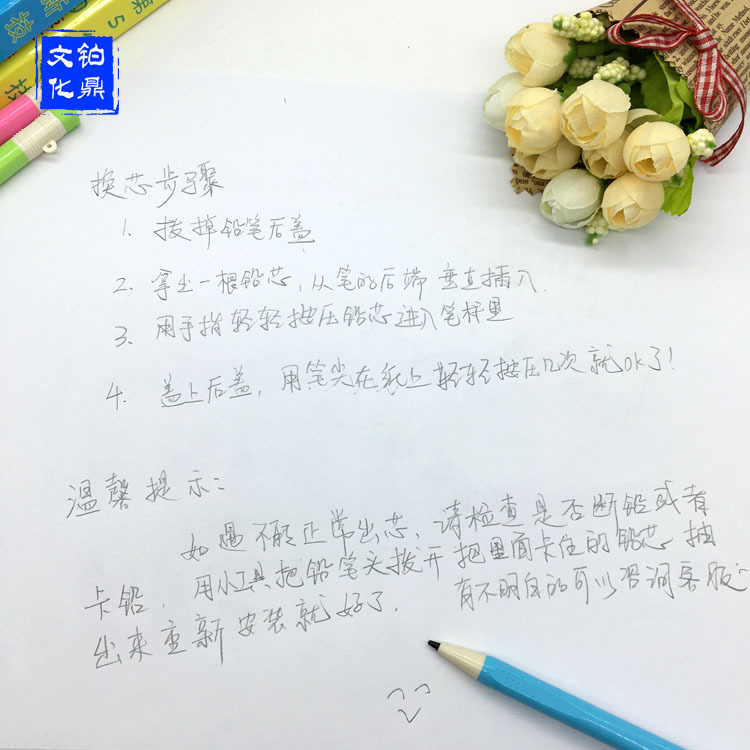 新技
第5
技
铂鼎
文化
换芯步骤
1. 拔掉铅笔后盖
2. 拿出一根铅芯,从笔的后端垂直插入.
3. 用手指轻轻按压铅芯进入笔杆里
4. 盖上后盖,用笔尖在纸上轻轻按压几次就OK了!
温馨提示:
如遇不能正常出芯,请检查是否断铅或者
卡铅,用小工具把铅笔头拨开把里面卡住的铅芯抽
出来重新安装就好了. 有不明白的可以咨询客服